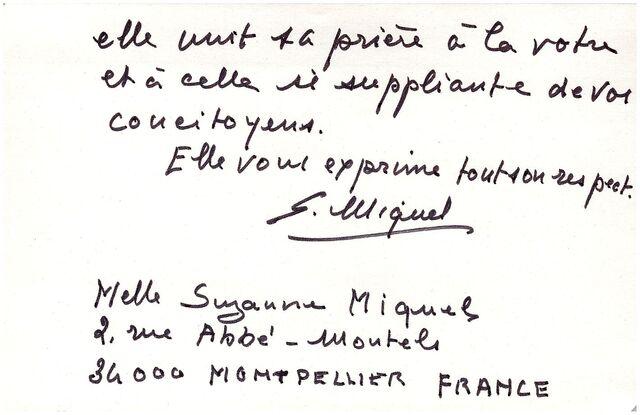 elle unit sa prière à la votre
et à celle si suppliante de vos
concitoyens.
Elle vous exprime tout son respect.
S. Miquel
Melle Suzanne Miquel
2, rue Abbé-Montels
34000 MONTPELLIER FRANCE